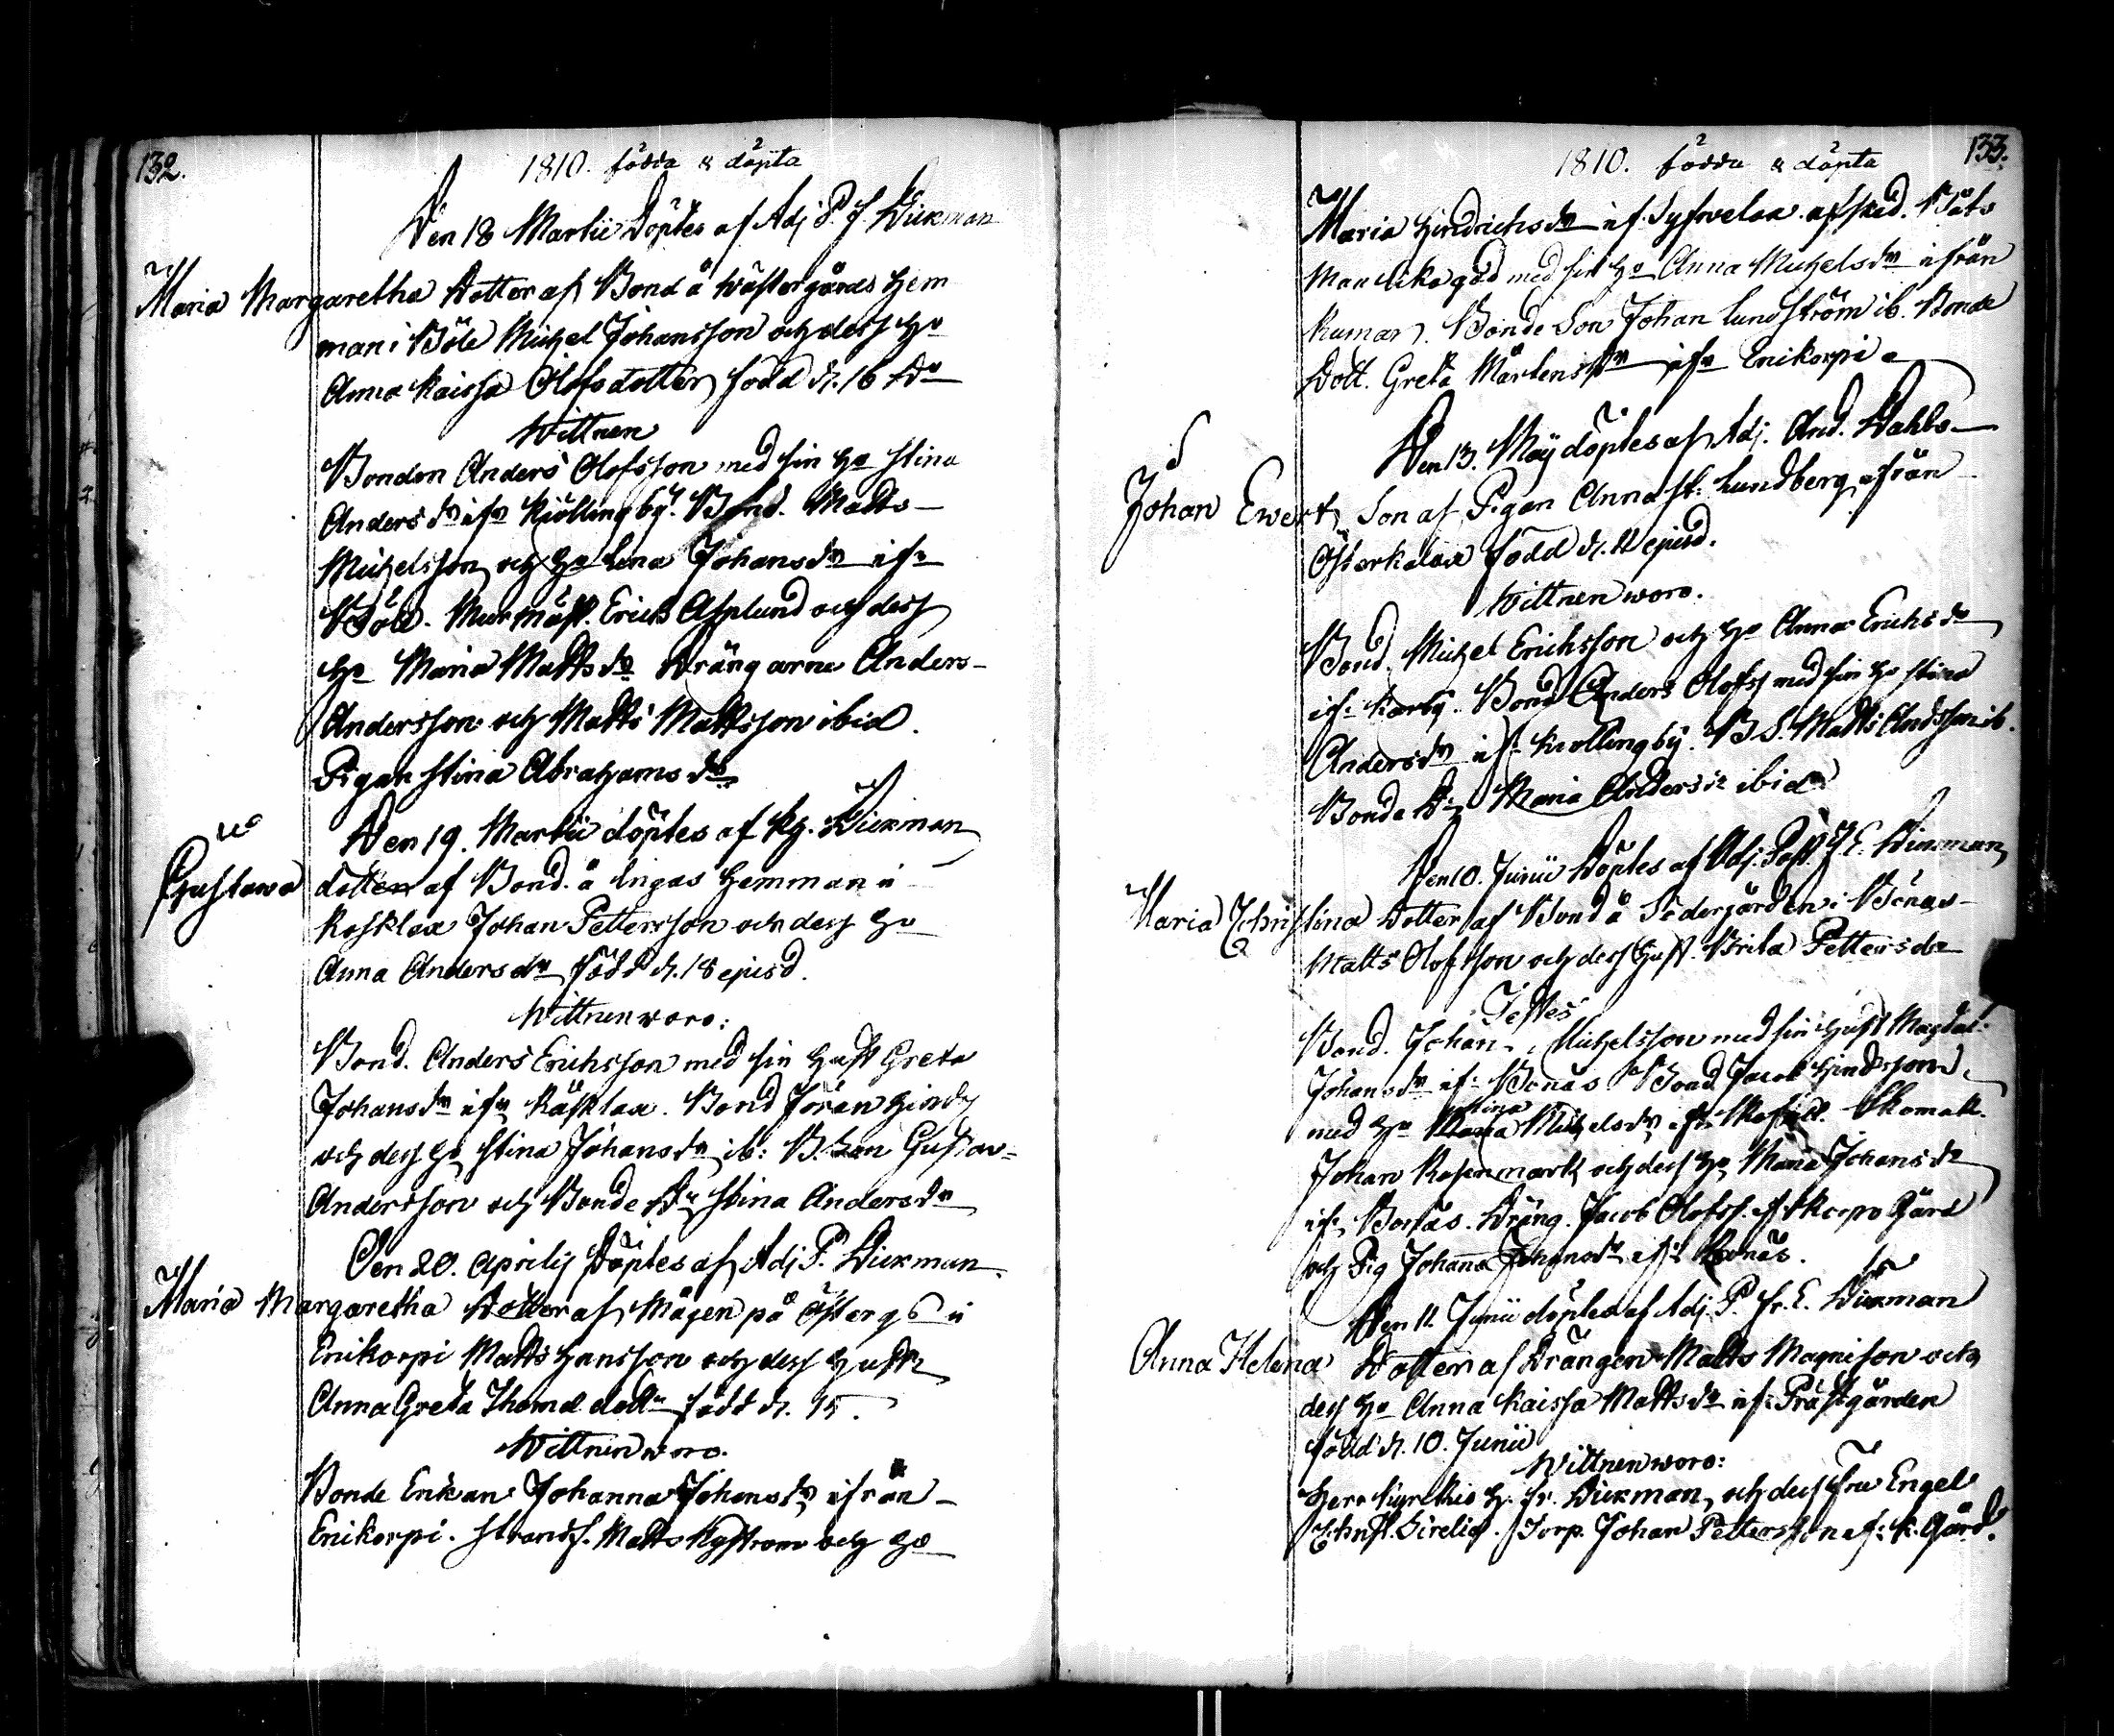 132.
1810. födda & döpta
Den 18 Martii Döptes af Adj P. J. Dickman
Maria Margaretha Dotter af Bond å Wästergårds Hem
man i Böle Michel Johansson och dess Ho
Anna Kaissa Olofsdotter född d. 16 do
Wittnen
Bonden Anders Olofsson med sin Ho Stina
Andersdr ifn Kiöllingby. Bond. Matts
Michelsson och Ho Lena Johansdr ifn
Böle. Murmäst. Erick Asplund och dess
Ho Maria Mattsdr Drängarne Anders
Andersson och Matts Mattsson ibid.
Pigan Stina Abrahamsdr
Den 19. Martii döptes af Kh. Dickman
Gustava dotter af Bond. å Ingas Hemman i
Kosklax Johan Pettersson och dess Ho
Anna Andersdr född d. 18 ejusd.
Wittnen woro:
Bond. Anders Erichsson med sin Hust Greta
Johansdr ifn Käsklax. Bond Jöran Hindss
och dess Ho Stina Johansdr ib: B. Son Gustav
Andersson och Bonde Dr Stina Andersdr
Den 20. Aprilij Döptes af Adj P. Dickman
Maria Margaretha Dotter af Mågen på Östergd i
Erikorpi Matts Hansson och dess Hustr
Anna Greta Thomædottr född d. 15.
Wittnen woro.
Bonde Enkan Johanna Johansdr ifrån
Erikorpi. Strandf. Matts Nyström och Ho
133.
1810. födda & döpta
Maria Hindrichsdr if. Syfwelax. afsked. Båts
Man Likagod med sin Ho Anna Michelsdr ifrån
Kumar. Bonde Son Johan Lundström ib. Bonde
Dott. Greta Mårtensdr ifn Erikorpi
Den 13. Maij döptes af Adj. And. Dahlbo
Johan Ewert Son af Pigan Anna St. Lundberg ifrån
Österkalax född d. 12 ejusd.
Wittnen woro.
Bond. Michel Erichsson och Ho Anna Erichsdr
ifn Karby. Bond Anders Olofss med sin Ho Stina
Andersdr ifn Kiöllingby. B. S. Matts Andsson ib.
Bonde Dr Maria Andersdr ibid
Den 10. Junii Döptes af Adj. Past. J. E. Dickman
Maria Christina Dotter af Bond å Södergården i Bönas
Matts Olofsson och dess Hust. Brita Pettersdr
Testes
Bond. Johan Michelsson med sin Hust Magdal.
Johansdr ifn Bönas Bond Jacob Hindrsson
med Ho Stina Michelsdr ifn Skomak.
Johan Rosenmark och dess Ho Maria Johansdr
ifn Bonäs. Dräng. Jacob Olofss. if. Skorpo Gård
och Pig Johanna Johansdr ifn Bonäs.
Den 12 Junii döptes af Adj. P. Fr. E. Dickman
Anna Helena Dotter af Drängen Matts Magnison och
dess Ho Anna Kaissa Mattsdr if: Prästgården
född d. 10. Junii
Wittnen woro:
Herr Kyrkio H. Fr. Dickman, och dess Fru Engel
Christ. Sirelia. Torp. Johan Pettersson if: K. Gård.